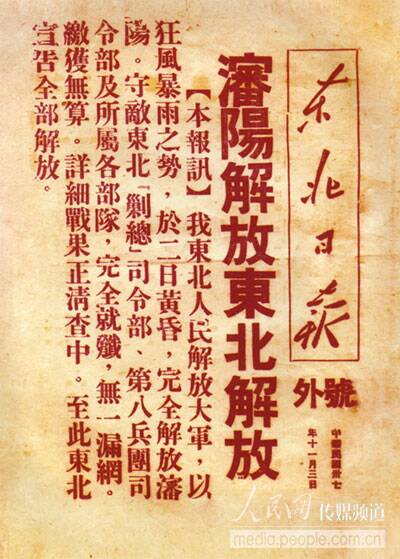 东北日报
號外
中華民國卅七
年十一月三日
瀋陽解放東北解放
【本報訊】我東北人民解放大軍，以
狂風暴雨之勢，於二日黃昏，完全解放瀋
陽。守敵東北「剿總」司令部、第八兵團司
令部及所屬各部隊，完全就殲，無一漏網。
繳獲無算。詳細戰果正清查中。至此東北
宣告全部解放。
人民网 传媒频道
media.people.com.cn